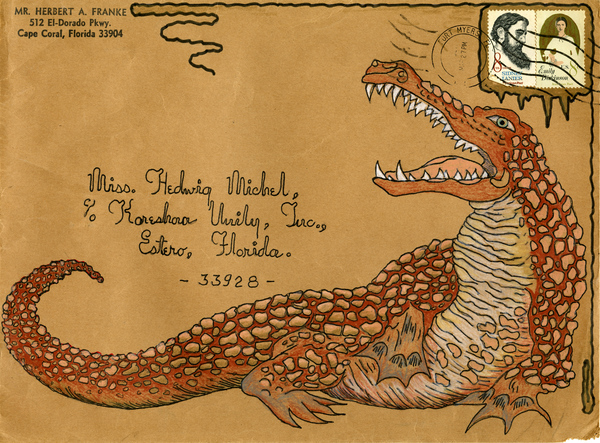 MR. HERBERT A. FRANKE
512 El-Dorado Pkwy.
Cape Coral, Florida 33904
FORT MYERS
PM
8
SIDNEY
LANIER
Emily
Dickinson
Miss. Hedwig Michel,
c/o Koreshan Unity, Inc.,
Estero, Florida.
- 33928 -